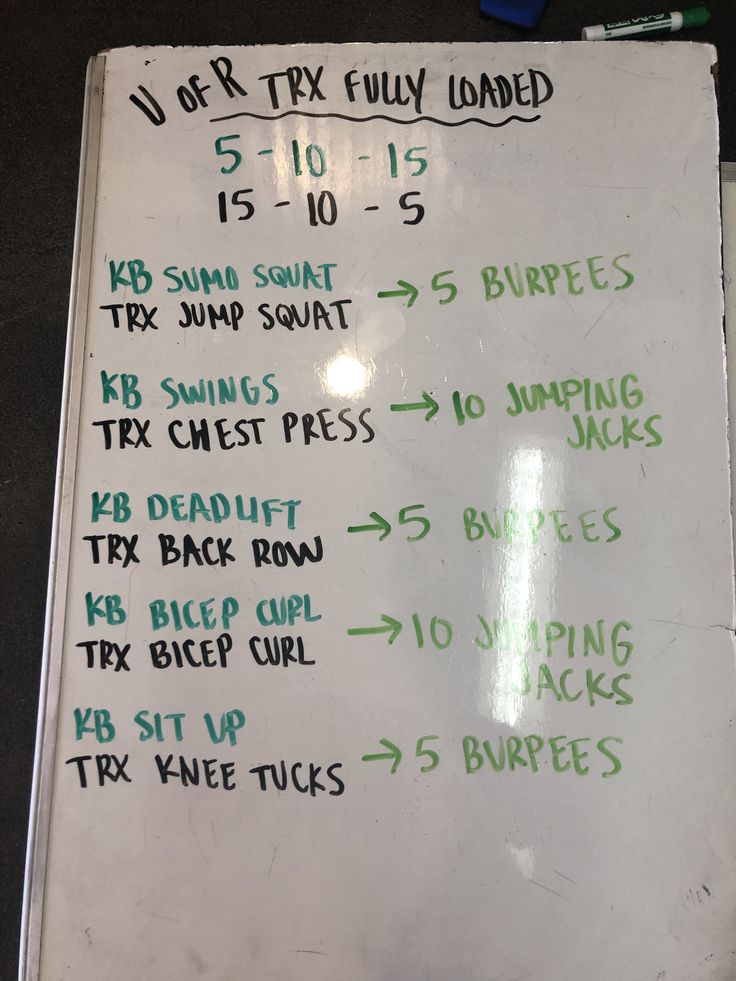 U OF R TRX FULLY LOADED
5 - 10 - 15
15 - 10 - 5
KB SUMO SQUAT
TRX JUMP SQUAT
→ 5 BURPEES
KB SWINGS
TRX CHEST PRESS
→ 10 JUMPING
JACKS
KB DEADLIFT
TRX BACK ROW
→ 5 BURPEES
KB BICEP CURL
TRX BICEP CURL
→ 10 JUMPING
JACKS
KB SIT UP
TRX KNEE TUCKS
→ 5 BURPEES